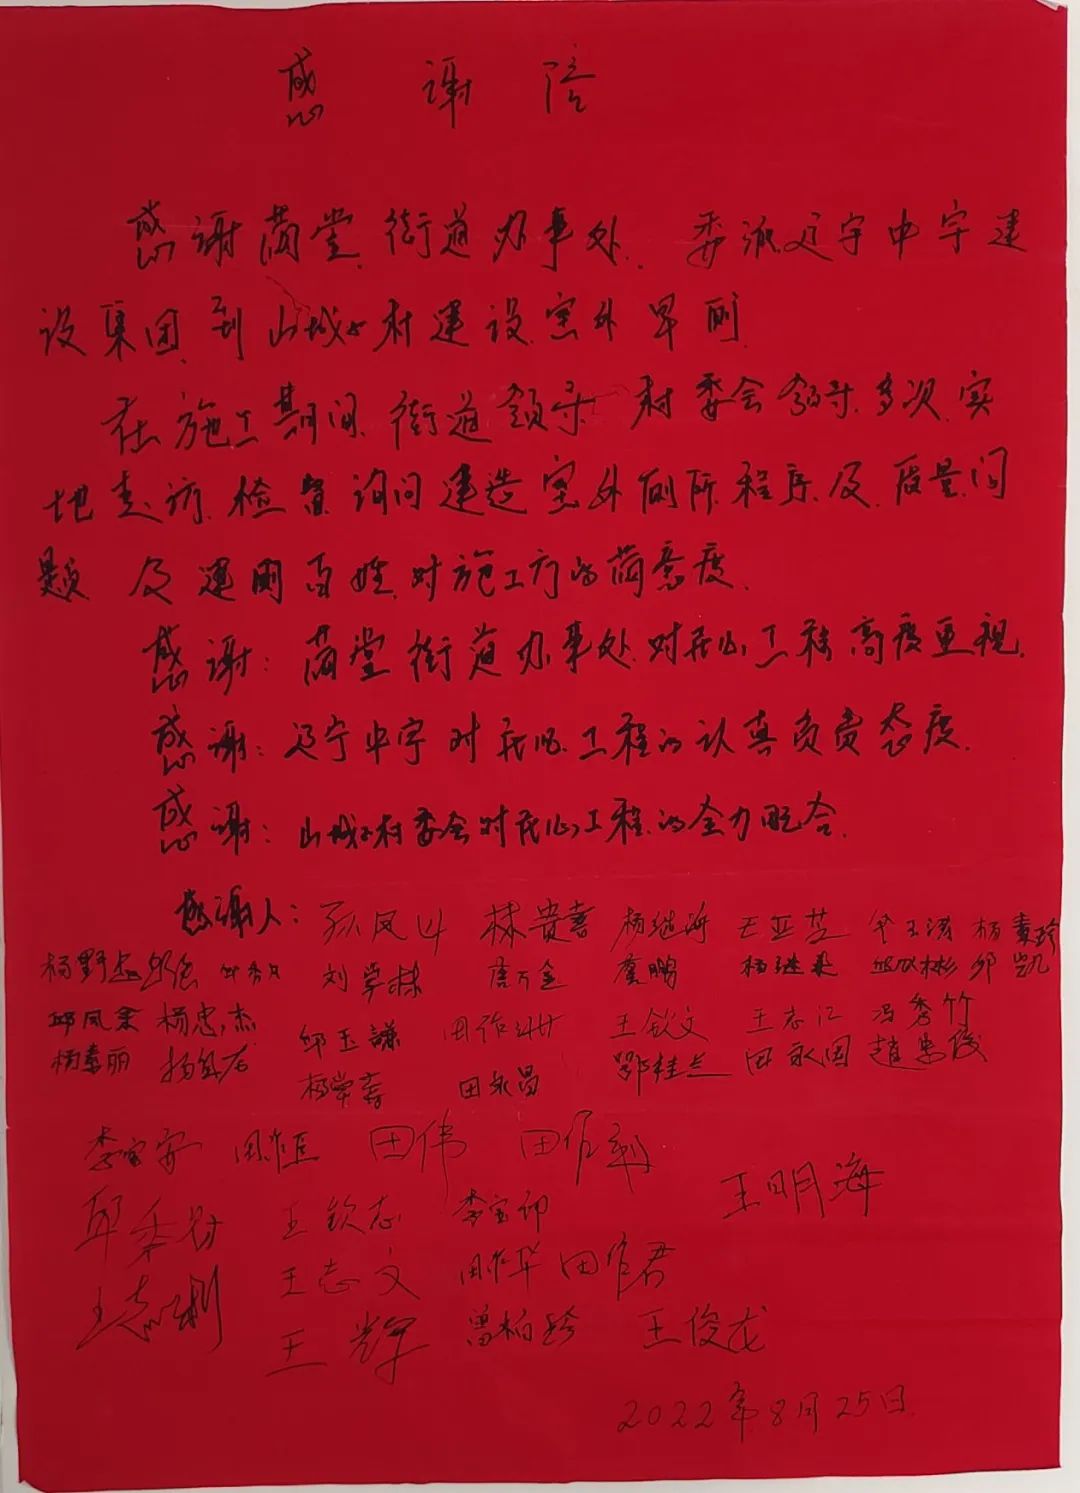 感谢信
感谢满堂街道办事处.委派辽宁中宇建
设集团到山城子村建设室外旱厕
在施工期间街道领导村委会领导多次实
地走访检督询问建造室外厕所程序及质量问
题及建厕百姓对施工方的满意度.
感谢:满堂街道办事处对民心工程高度重视.
感谢:辽宁中宇对民心工程的认真负责态度.
感谢:山城子村委会对民心工程的全力配合.
感谢人:孙凤 林贵喜 杨继海 王亚芝 杨素玲
刘学林 唐万金 鹏 杨继来 邱 凯
邱凤 杨忠杰 邱玉謙 王钦文 王志江 冯秀竹
杨素丽 杨 杨荣春 田永昌 鄂桂兰 田永国 趙忠俊
李宝安 田 田伟 田
邱 王钦志 李宝印 王明海
王志刚 王志文 田 田 君
王辉 曾柏玲 王俊龙
2022年8月25日.